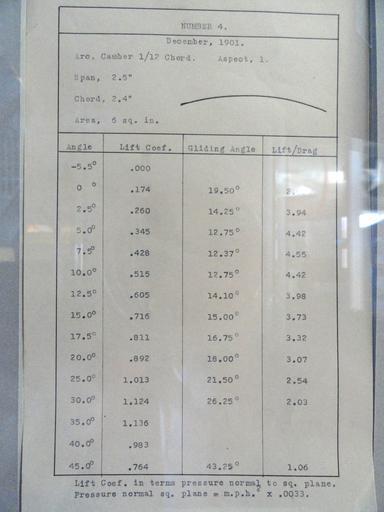 NUMBER 4.
December, 1901.
Arc, Camber 1/12 Chord. Aspect, 1.
Span, 2.5"
Chord, 2.4"
Area, 6 sq. in.
Angle Lift Coef. Gliding Angle Lift/Drag
-5.5° .000
0 ° .174 19.50° 2.
2.5° .260 14.25° 3.94
5.0° .345 12.75° 4.42
7.5° .428 12.37° 4.55
10.0° .515 12.75° 4.42
12.5° .605 14.10° 3.98
15.0° .716 15.00° 3.73
17.5° .811 16.75° 3.32
20.0° .892 18.00° 3.07
25.0° 1.013 21.50° 2.54
30.0° 1.124 26.25° 2.03
35.0° 1.136
40.0° .983
45.0° .764 43.25° 1.06
Lift Coef. in terms pressure normal to sq. plane.
Pressure normal sq. plane = m.p.h.² x .0033.